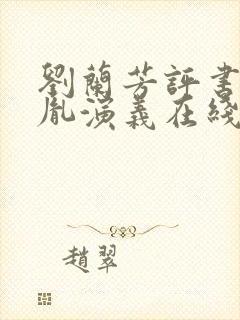 劉蘭芳評書
胤演義在綫
趙翠